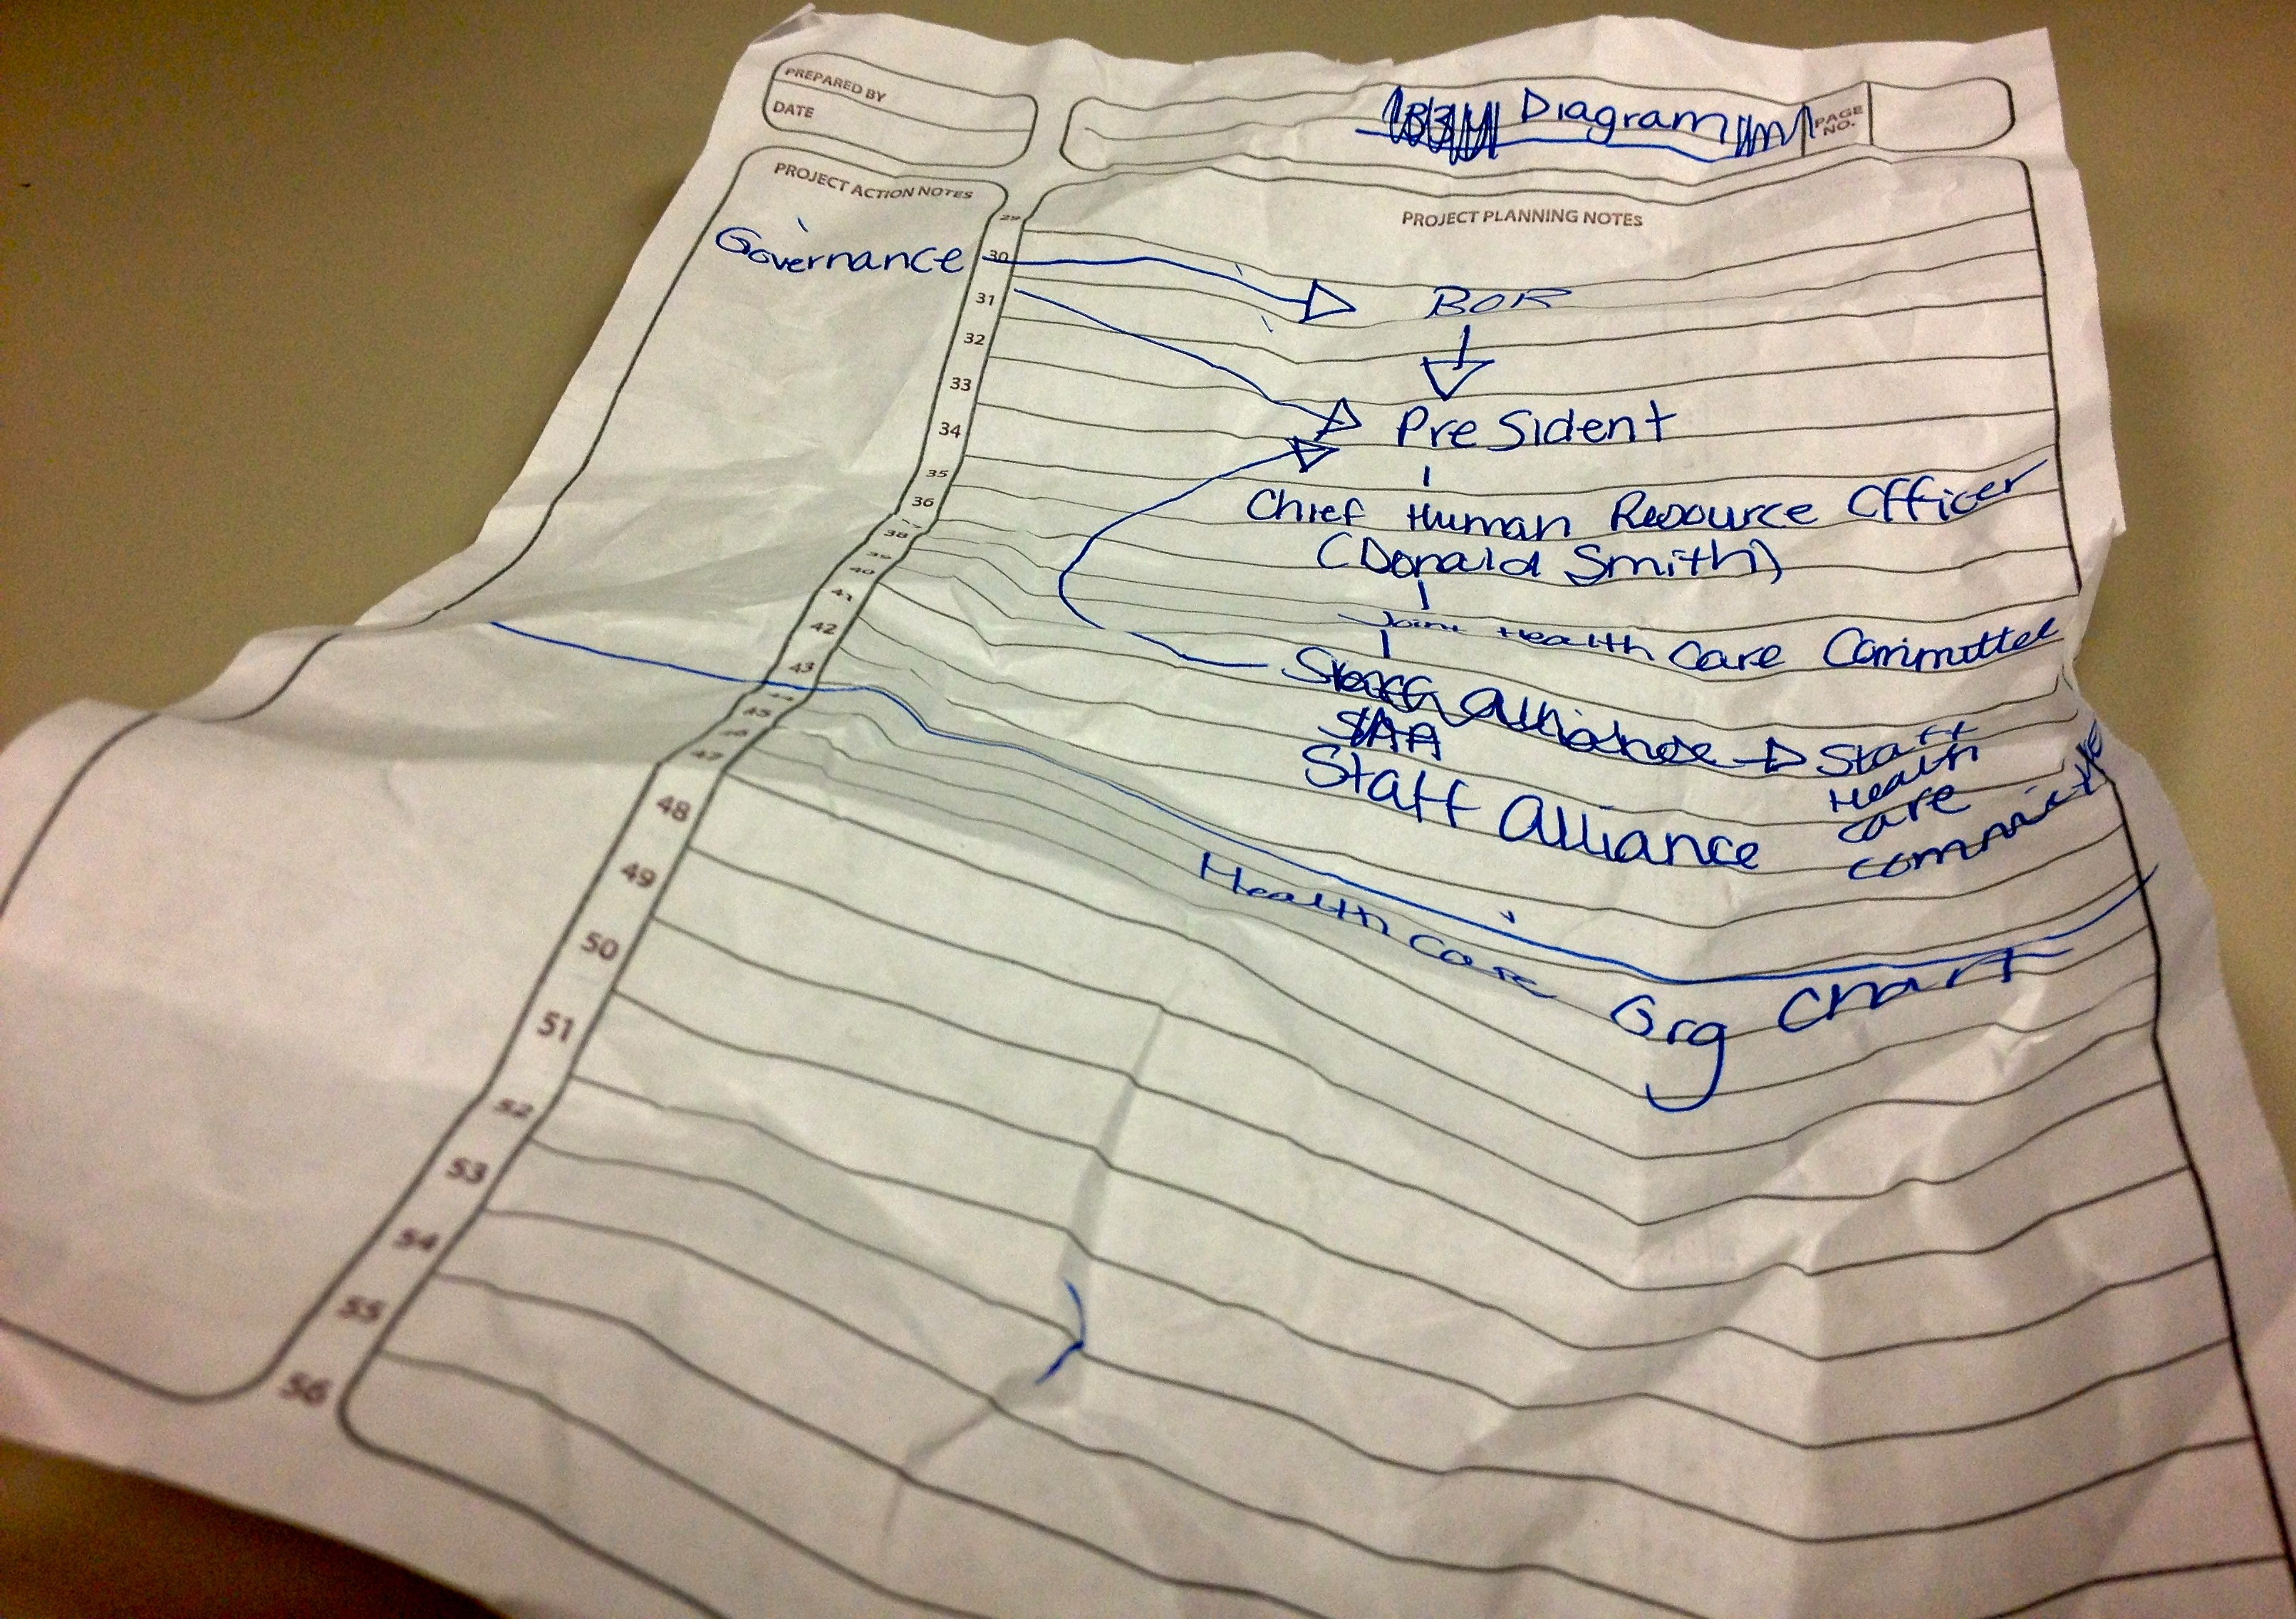 PREPARED BY
DATE
Diagram
PAGE NO.
PROJECT ACTION NOTES
PROJECT PLANNING NOTES
Governance
BOR
President
Chief Human Resource Officer
(Donald Smith)
Joint Health Care Committee
Alliance
Staff
Health
Care
Committee
Staff Alliance
Health Care Org Chart
29
30
31
32
33
34
35
36
38
39
40
41
42
43
44
45
46
47
48
49
50
51
52
53
54
55
56